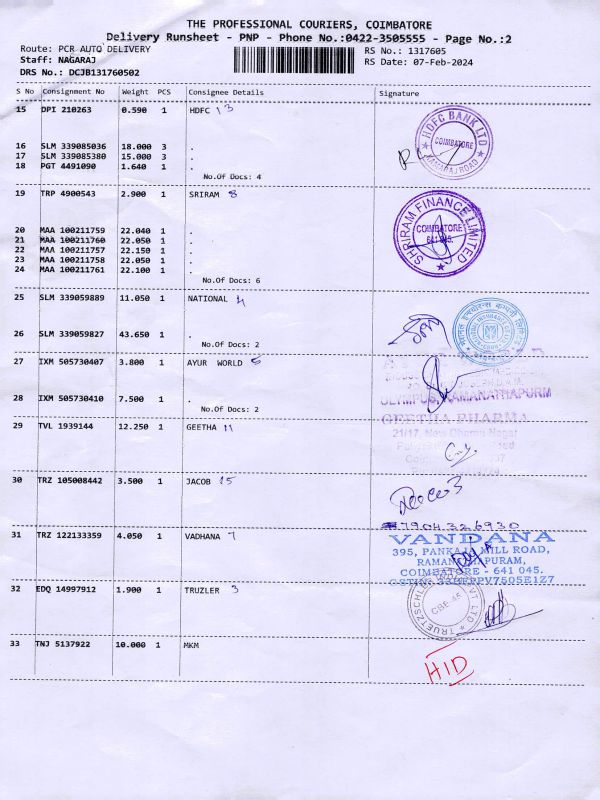 THE PROFESSIONAL COURIERS, COIMBATORE
Delivery Runsheet - PNP - Phone No.:0422-3505555 - Page No.:2
Route: PCR AUTO DELIVERY
RS No.: 1317605
Staff: NAGARAJ
RS Date: 07-Feb-2024
DRS No.: DCJB131760502
S No Consignment No Weight PCS Consignee Details Signature
15 DPI 210263 0.590 1 HDFC 13
HDFC BANK LTD
COIMBATORE
KAMARAJ ROAD
16 SLM 339085036 18.000 3 .
17 SLM 339085380 15.000 3 .
18 PGT 4491090 1.640 1 .
No.Of Docs: 4
19 TRP 4900543 2.900 1 SRIRAM 8
SHRIRAM FINANCE LIMITED
COIMBATORE
641 045.
20 MAA 100211759 22.040 1 .
21 MAA 100211760 22.050 1 .
22 MAA 100211757 22.150 1 .
23 MAA 100211758 22.050 1 .
24 MAA 100211761 22.100 1 .
No.Of Docs: 6
25 SLM 339059889 11.050 1 NATIONAL 4
26 SLM 339059827 43.650 1 .
No.Of Docs: 2
27 IXM 505730407 3.800 1 AYUR WORLD 5
28 IXM 505730410 7.500 1 .
No.Of Docs: 2
OLYMPUS, RAMANATHAPURM
29 TVL 1939144 12.250 1 GEETHA 11
GEETHA PHARMA
21/17, New Nagar
30 TRZ 105008442 3.500 1 JACOB 15
7904326930
31 TRZ 122133359 4.050 1 VADHANA 7
VANDANA
395, PANKAJA MILL ROAD,
RAMANATHAPURAM,
COIMBATORE - 641 045.
32 EDQ 14997912 1.900 1 TRUZLER 3
CBE-45
33 TNJ 5137922 10.000 1 MKM
HID